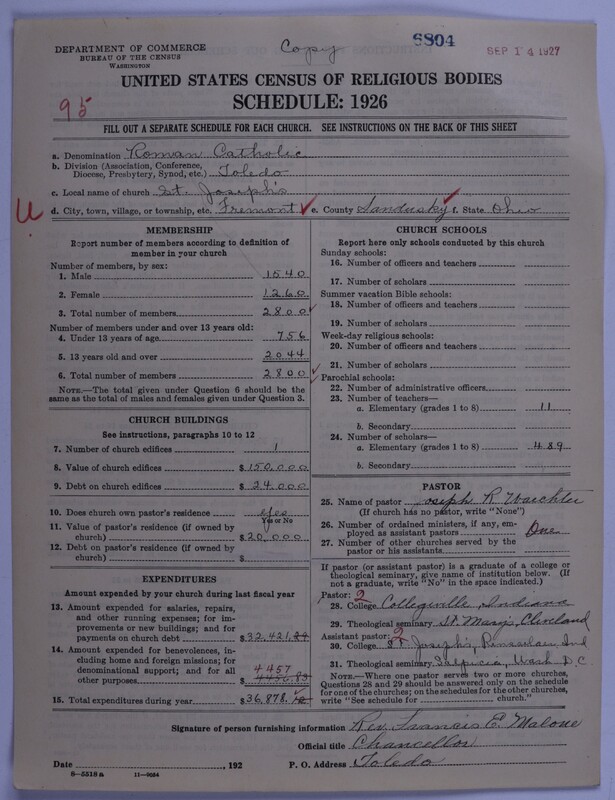 DEPARTMENT OF COMMERCE
BUREAU OF THE CENSUS
WASHINGTON
Copy
6804
SEP 14 1927
UNITED STATES CENSUS OF RELIGIOUS BODIES
SCHEDULE: 1926
95
FILL OUT A SEPARATE SCHEDULE FOR EACH CHURCH. SEE INSTRUCTIONS ON THE BACK OF THIS SHEET
a. Denomination Roman Catholic
b. Division (Association, Conference,
Diocese, Presbytery, Synod, etc.) Toledo
c. Local name of church St. Joseph's
U.
d. City, town, village, or township, etc. Fremont e. County Sandusky f. State Ohio
MEMBERSHIP
Report number of members according to definition of
member in your church
Number of members, by sex:
1. Male 1540
2. Female 1260
3. Total number of members 2800
Number of members under and over 13 years old:
4. Under 13 years of age 756
5. 13 years old and over 2044
6. Total number of members 2800
NOTE.—The total given under Question 6 should be the
same as the total of males and females given under Question 3.
CHURCH BUILDINGS
See instructions, paragraphs 10 to 12
7. Number of church edifices 1
8. Value of church edifices $150,000
9. Debt on church edifices $24,000
10. Does church own pastor's residence Yes
Yes or No
11. Value of pastor's residence (if owned by
church) $20,000
12. Debt on pastor's residence (if owned by
church) $
EXPENDITURES
Amount expended by your church during last fiscal year
13. Amount expended for salaries, repairs,
and other running expenses; for im-
provements or new buildings; and for
payments on church debt $32,421.
14. Amount expended for benevolences, in-
cluding home and foreign missions; for
denominational support; and for all
other purposes $4456.83
4457
15. Total expenditures during year $36,878.
CHURCH SCHOOLS
Report here only schools conducted by this church
Sunday schools:
16. Number of officers and teachers
17. Number of scholars
Summer vacation Bible schools:
18. Number of officers and teachers
19. Number of scholars
Week-day religious schools:
20. Number of officers and teachers
21. Number of scholars
Parochial schools:
22. Number of administrative officers
23. Number of teachers—
a. Elementary (grades 1 to 8) 11
b. Secondary
24. Number of scholars—
a. Elementary (grades 1 to 8) 489
b. Secondary
PASTOR
25. Name of pastor Joseph R. Waechter
(If church has no pastor, write "None")
26. Number of ordained ministers, if any, em-
ployed as assistant pastors One
27. Number of other churches served by the
pastor or his assistants
If pastor (or assistant pastor) is a graduate of a college or
theological seminary, give name of institution below. (If
not a graduate, write "No" in the space indicated.)
Pastor: 2
28. College Collegeville, Indiana
29. Theological seminary St. Mary's, Cleveland
Assistant pastor: 2
30. College St. Joseph's, Rensselaer, Ind
31. Theological seminary Sulpician, Wash. D.C.
NOTE.—Where one pastor serves two or more churches,
Questions 28 and 29 should be answered only on the schedule
for one of the churches; on the schedules for the other churches,
write "See schedule for church."
Signature of person furnishing information Rev. Francis E. Malone
Official title Chancellor
Date , 192 P. O. Address Toledo
8—5518a 11—9054